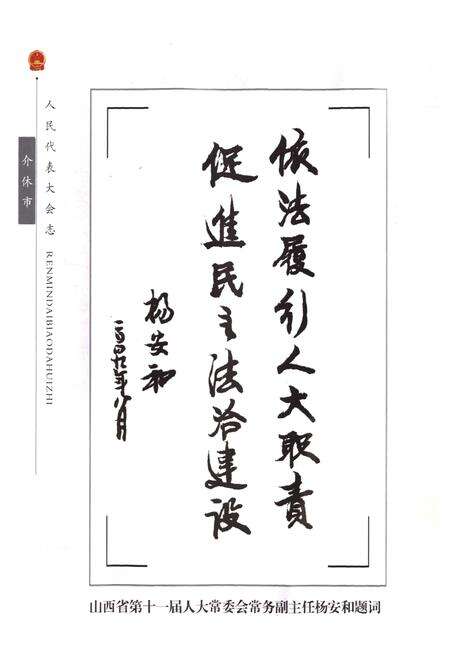 人民代表大会志 RENMINDAIBIAODAHUIZHI
介休市
依法履行人大职責
促進民主法治建设
杨安和
二〇〇九年八月
山西省第十一届人大常委会常务副主任杨安和题词